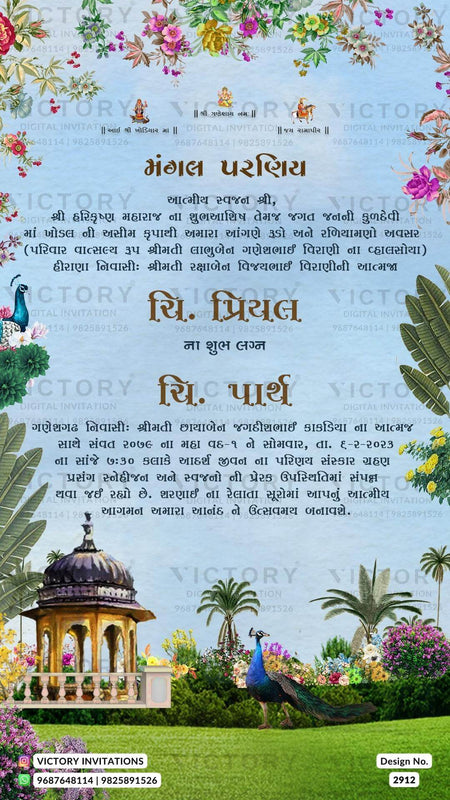 || શ્રી ગણેશાય નમઃ ||
|| આઈ શ્રી ખોડિયાર માં ||
|| જય રામાપીર ||
મંગલ પરણિય
આત્મીય સ્વજન શ્રી,
શ્રી હરિકૃષ્ણ મહારાજ ના શુભઆશિષ તેમજ જગત જનની કુળદેવી
માં ખોડલ ની અસીમ કૃપાથી અમારા આંગણે રૂડો અને રળિયામણો અવસર
(પરિવાર વાત્સલ્ય રૂપ શ્રીમતી લાભુબેન ગણેશભાઈ વિરાણી ના વ્હાલસોયા)
હીરાણા નિવાસીઃ શ્રીમતી રક્ષાબેન વિજયભાઈ વિરાણીની આત્મજા
ચિ. પ્રિયલ
ના શુભ લગ્ન
ચિ. પાર્થ
ગણેશગઢ નિવાસીઃ શ્રીમતી છાયાબેન જગદીશભાઈ કાકડિયા ના આત્મજ
સાથે સંવત ૨૦૭૯ ના મહા વદ-૧ ને સોમવાર, તા. ૬-૨-૨૦૨૩
ના સાંજે ૭:૩૦ કલાકે આદર્શ જીવન ના પરિણય સંસ્કાર ગ્રહણ
પ્રસંગ સ્નેહીજન અને સ્વજનો ની પ્રેરક ઉપસ્થિતિમાં સંપન્ન
થવા જઈ રહ્યો છે. શરણાઈ ના રેલાતા સૂરોમાં આપનું આત્મીય
આગમન અમારા આનંદ ને ઉત્સવમય બનાવશે.
VICTORY
DIGITAL INVITATION
9687648114 | 9825891526
VICTORY INVITATIONS
9687648114 | 9825891526
Design No.
2912